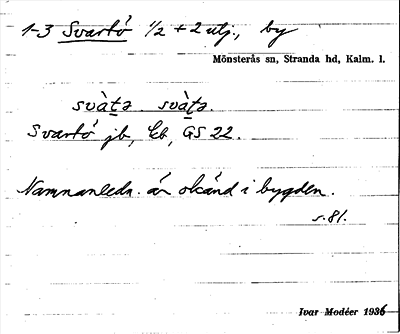 1-3 Svartö 1/2 + 2 utj., by
Mönsterås sn, Stranda hd, Kalm. l.
svàt̠ə svàt̠ə
Svartö jb, Eb, GS 22.
Namnanledn. är okänd i bygden.
s. 81.
Ivar Modéer 1936